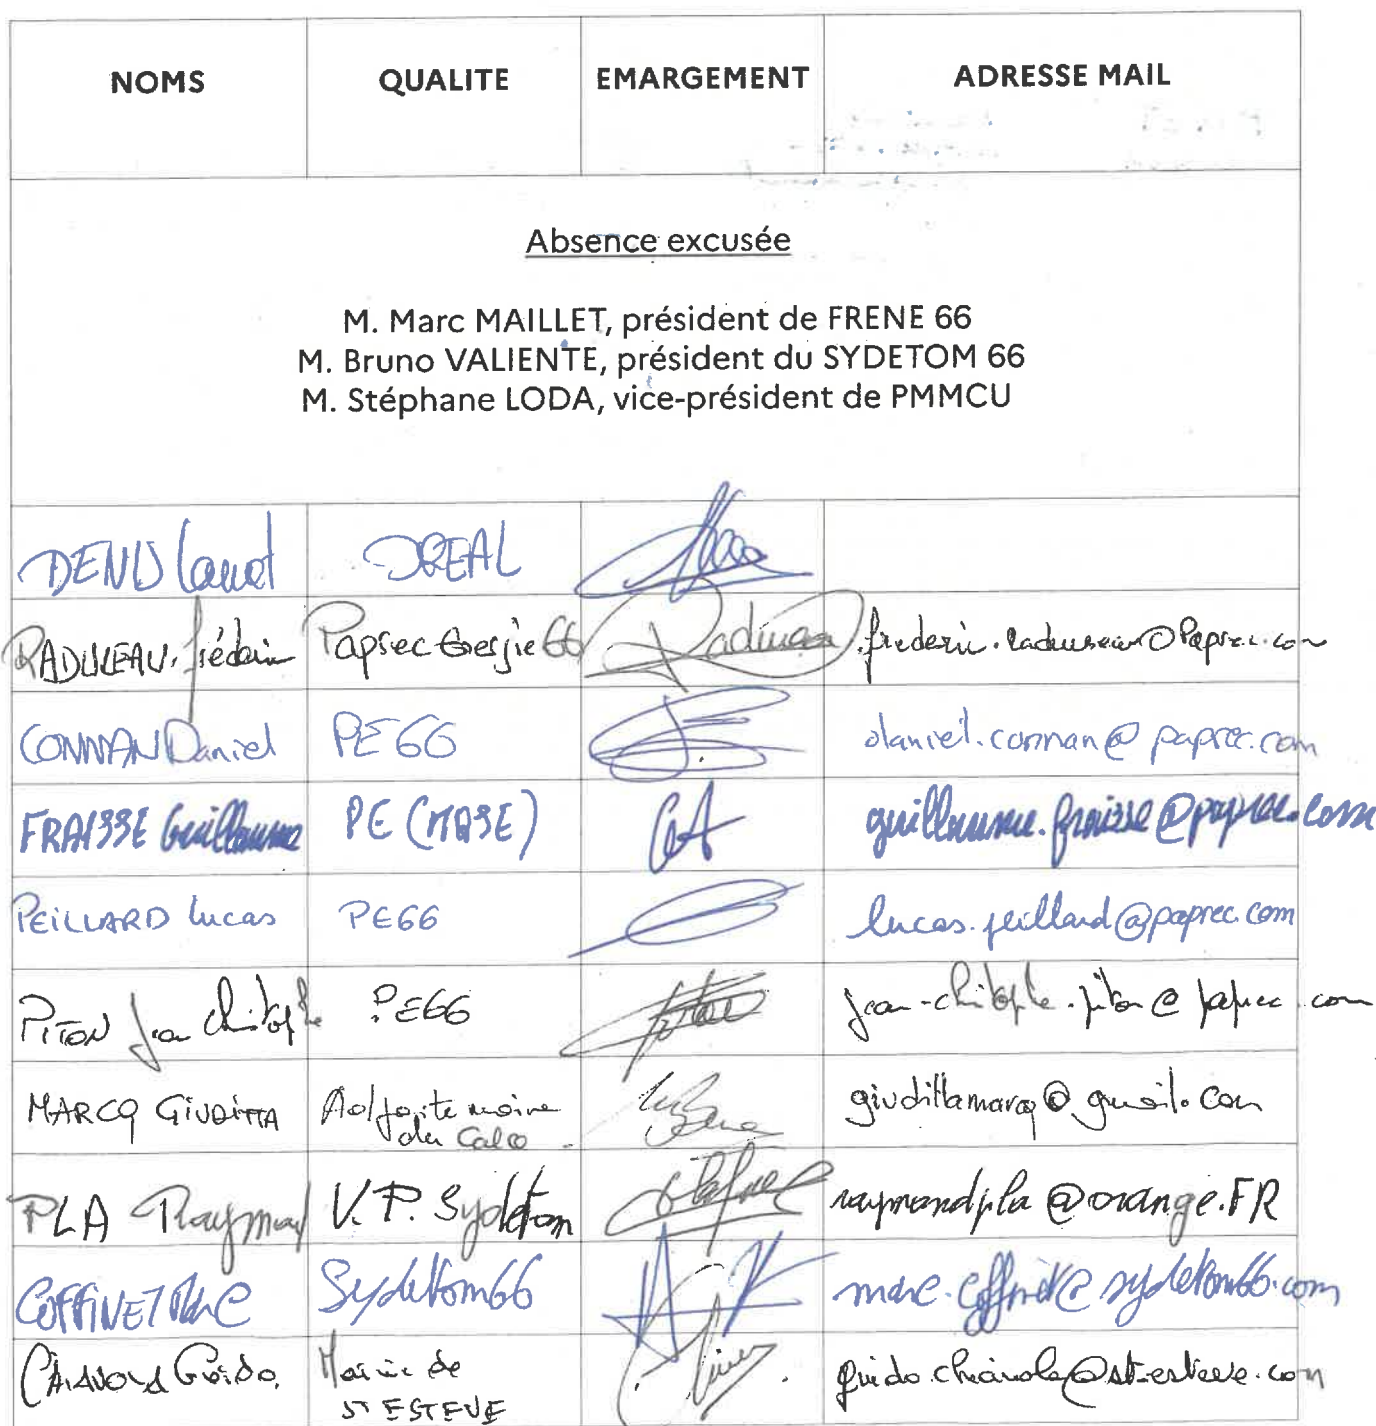 NOMS QUALITE EMARGEMENT ADRESSE MAIL
Absence excusée
M. Marc MAILLET, président de FRENE 66
M. Bruno VALIENTE, président du SYDETOM 66
M. Stéphane LODA, vice-président de PMMCU
DENIS DREAL
RADUREAU frédéric Paprec Energie 66 frederic.radureau@paprec.com
CONNAN Daniel PE66 daniel.connan@paprec.com
FRAISSE Guillaume PE (MASE) guillaume.fraisse@paprec.com
PEILLARD Lucas PE66 lucas.peillard@paprec.com
PITON Jean Christophe PE66 jean-christophe.piton@paprec.com
MARCQ GIUDITTA Adjointe maire
de Calce giudittamarcq@gmail.com
PLA Raymond V.P. Sydetom raymondpla@orange.FR
COFFINET Marc Sydetom66 marc.coffinet@sydetom66.com
CHIAVOLA Guido Mairie de
ST ESTEVE guido.chiavola@st-esteve.com